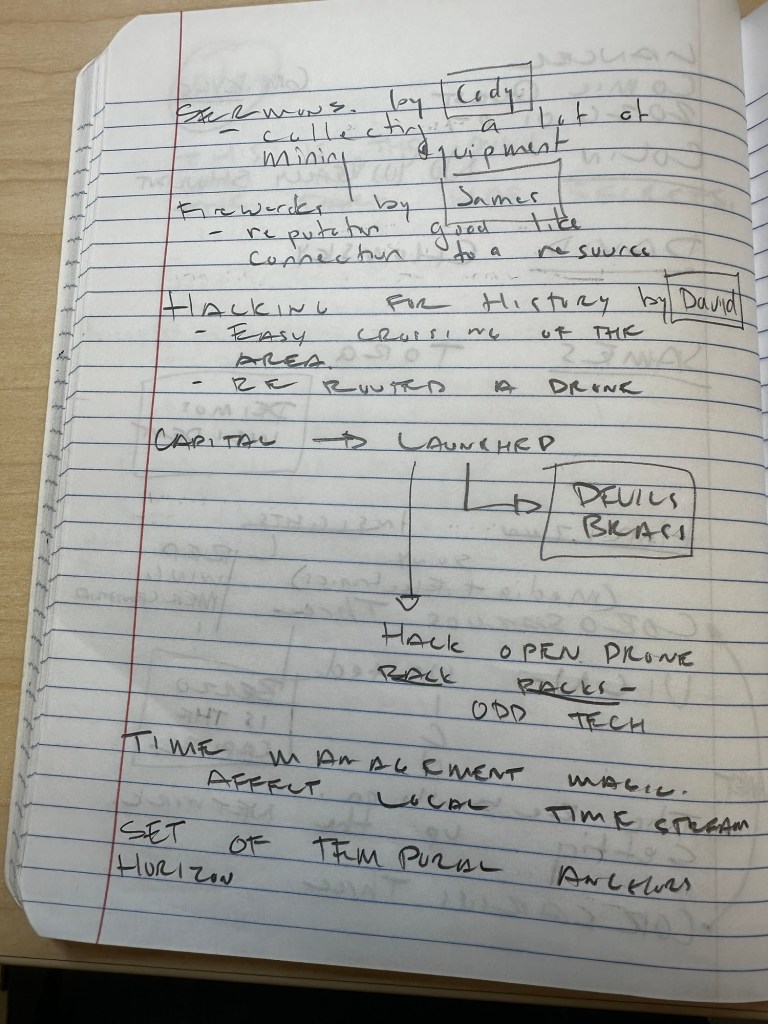 SERMONS. by Cody
- collecting a lot of
mining equipment
Fireworks by James
- reputation good like
connection to a resource
HACKING FOR HISTORY by David
- EASY CRUISING OF THE
AREA.
- RE ROUTED A DRONE
CAPITAL → LAUNCHED
DEVILS
HACK OPEN DRONE
RACK RACKS -
ODD TECH
TIME MANAGEMENT MAGIC.
AFFECT LOCAL TIME STREAM
SET OF TEMPORAL ANCHORS
HORIZON